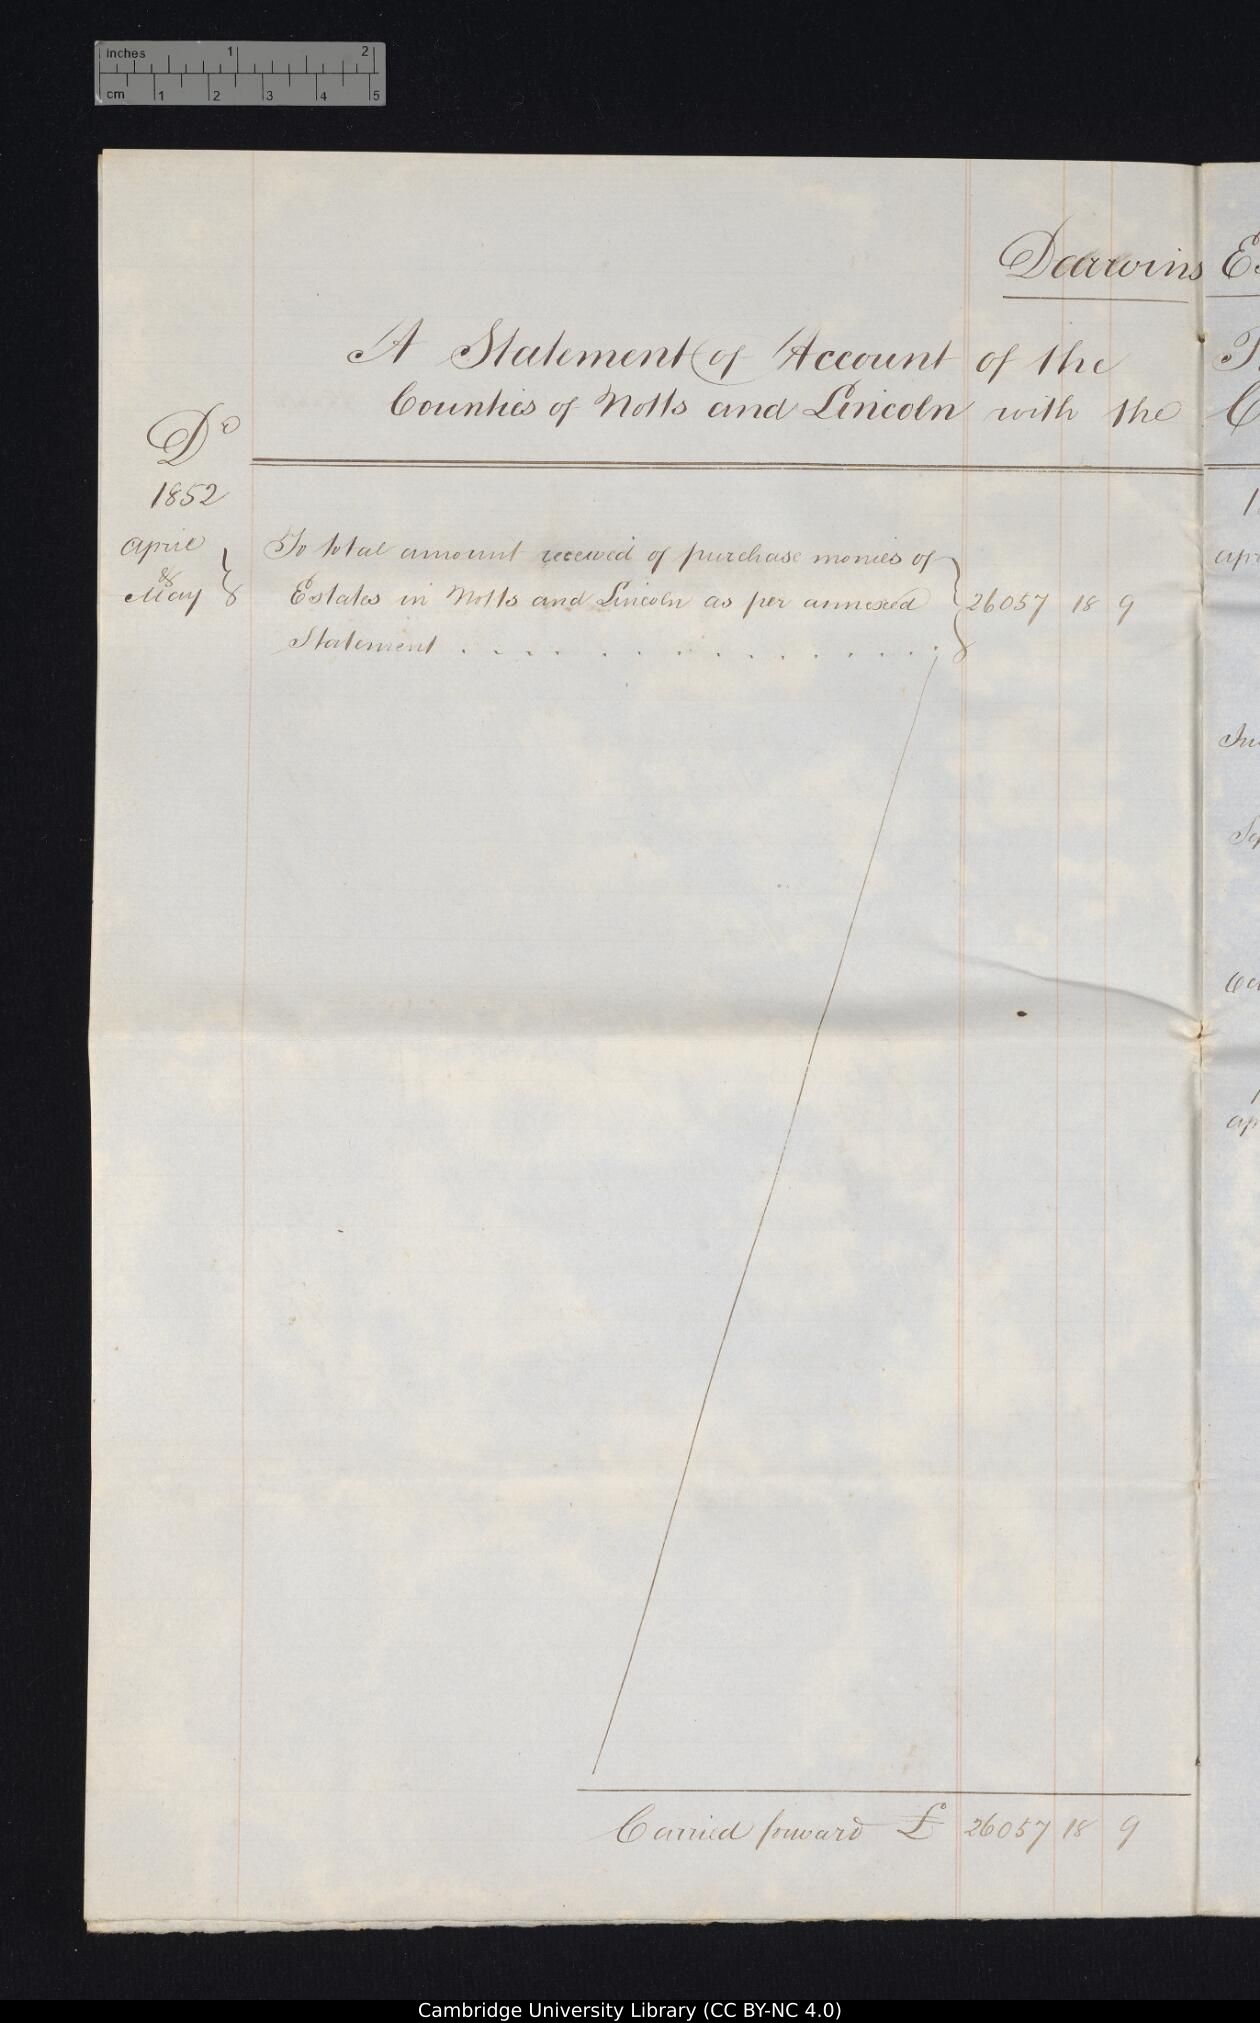 inches 1 2
cm 1 2 3 4 5
Darwins
A Statement of Account of the
Counties of Notts and Lincoln with the
Dr
1852
April
&
May
To total amount received of purchase monies of
Estates in Notts and Lincoln as per annexed 26057 18 9
Statement . . . . . . . . . . . . . . . .
Carried forward £ 26057 18 9
Cambridge University Library (CC BY-NC 4.0)